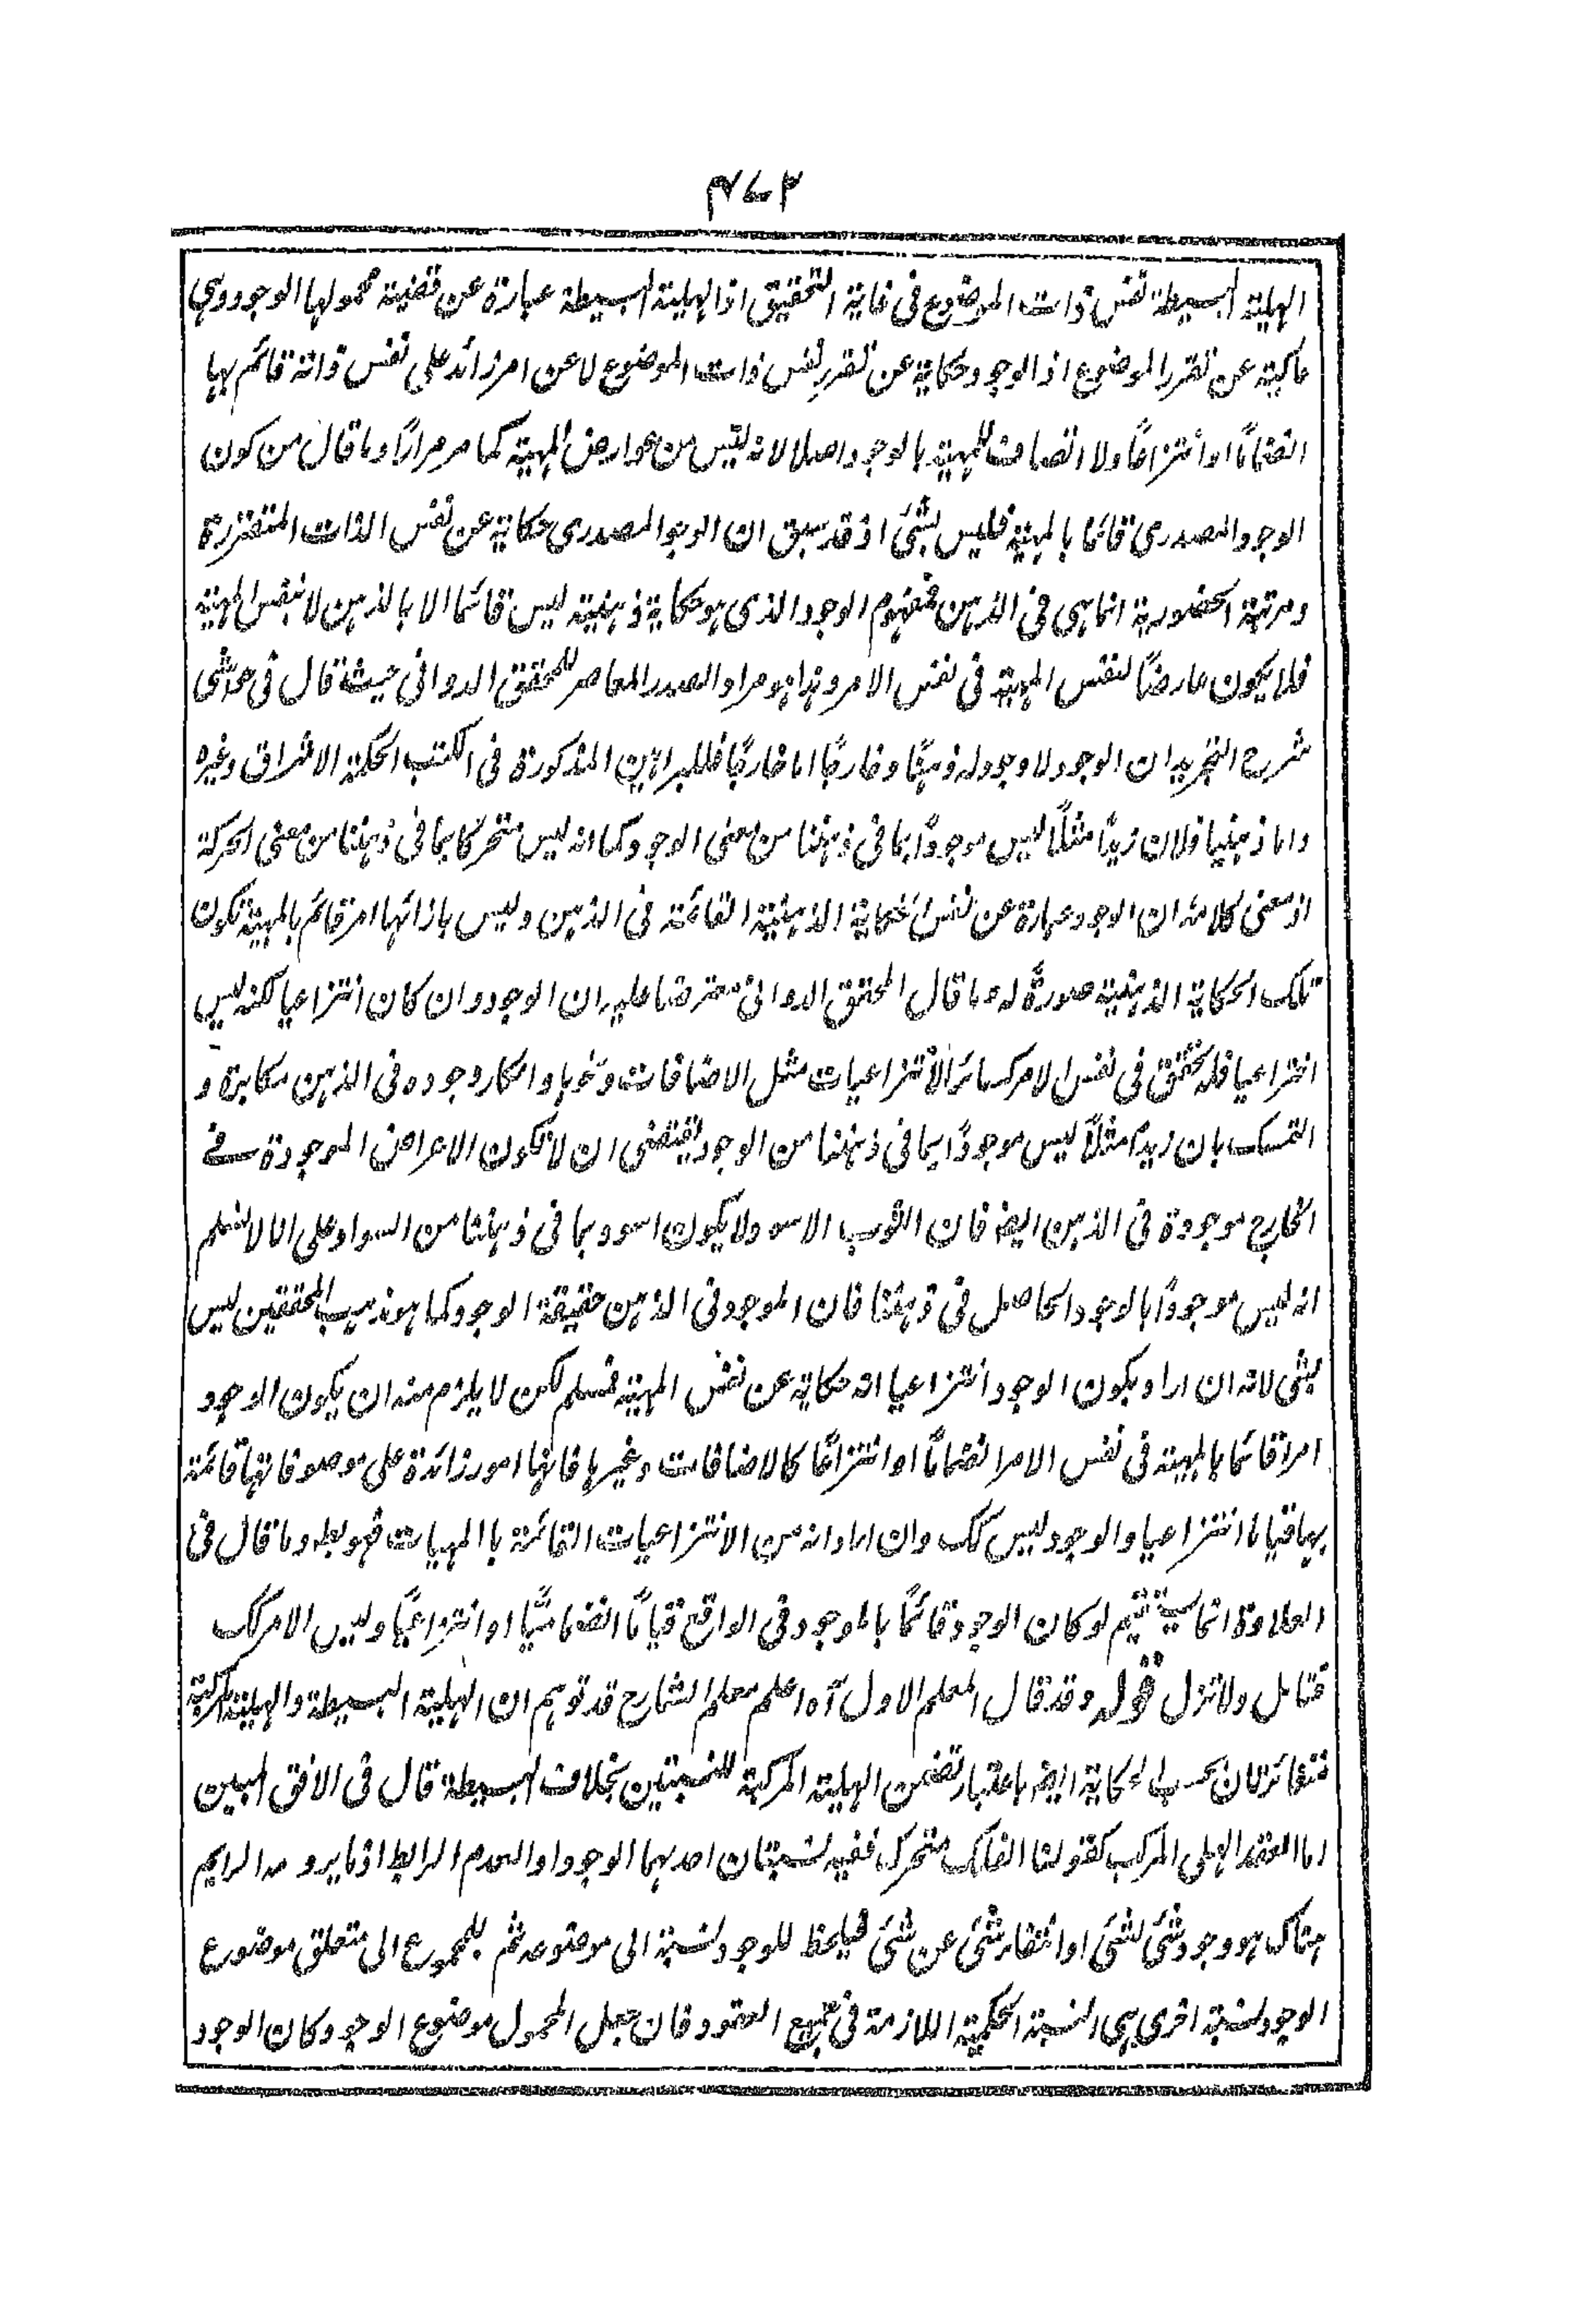 الهلية البسيطة نفس ذات الموضوع فى غاية التحقيق اذ الهلية البسيطة عبارة عن قضية محمولها الوجود وهى
حاكية عن تقرر الموضوع اذ الوجود حكاية عن تقرر نفس ذات الموضوع لا عن امر زائد على نفس ذاته قائم بها
انضماما او انتزاعاً ولا اتصاف للمهية بالوجود اصلا لانه ليس من عوارض المهية كما مر مرارًا وما قال من كون
الوجود المصدرى قائما بالمهية فليس بشئ اذ قد سبق ان الوجود المصدرى حكاية عن نفس الذات المتقررة
ومرتبة الحضورية انما هى فى الذهن فمفهوم الوجود الذى هو حكاية ذهنية ليس قائما الا بالذهن لا بنفس المهية
فلا يكون عارضًا لنفس المهية فى نفس الامر وهذا هو مراد الصدر المعاصر للمحقق الدوانى حيث قال فى حواشى
شرح التجريد ان الوجود لا وجود له ذهنًا وخارجًا اما خارجًا فللبراهين المذكورة فى الكتب الحكمية الاشراق وغيره
واما ذهنيا فلان زيدًا مثلًا ليس موجودًا بما فى ذهننا من معنى الوجود كما انه ليس متحركا بما فى ذهننا من معنى الحركة
اذ معنى كلامه ان الوجود عبارة عن نفس الحكاية الذهنية القائمة فى الذهن وليس بازائها امر قائم بالمهية تكون
تلك الحكاية الذهنية صورةً له وما قال المحقق الدوانى معترضا عليه ان الوجود وان كان انتزاعيا لكنه ليس
اختراعيا فله تحقق فى نفس الامر كسائر الانتزاعيات مثل الاضافات ونحوها وانكار وجوده فى الذهن مكابرة و
التمسك بان زيدًا مثلًا ليس موجودًا بما فى ذهننا من الوجود يقتضى ان لا تكون الاعراض الموجودة فى
الخارج موجودة فى الذهن ايضا فان الثوب الاسود لا يكون اسود بما فى ذهننا من السواد على انا لا نسلم
انه ليس موجودًا بالوجود الحاصل فى ذهننا فان الموجود فى الذهن حقيقة الوجود كما هو مذهب المحققين ليس
بشئ لانه ان اراد بكون الوجود انتزاعيا انه حكاية عن نفس المهية فمسلم لكن لا يلزم منه ان يكون الوجود
امرا قائما بالمهية فى نفس الامر انضمامًا او انتزاعًا كالاضافات وغيرها فانها امور زائدة على موصوفاتها قائمة
بها قياما انتزاعيا والوجود ليس كك وان اراد انه من الانتزاعيات القائمة باالمهيات فهو بط وما قال فى
العلاوة انما يتم لو كان الوجود قائمًا بالموجود فى الواقع قيامًا انضماميًا او انتزاعيًا وليس الامر كك
فتامل ولا تزل قوله وقد قال المعلم الاول آه اعلم معلم الشارح قد توهم ان الهلية البسيطة والهلية المركبة
متغائرتان بحسب الحكاية ايضا باعتبار تضمن الهلية المركبة للنسبتين بخلاف البسيطة قال فى الافق المبين
اما العقد الهلى المركب كقولنا الفلك متحرك ففيه نسبتان احدهما الوجود او العدم الرابط اذ ما يروم
هناك هو وجود شئ لشئ او انتفاء شئ عن شئ فيلحظ للوجود نسبة الى موضوعه ثم للمجموع الى متعلق موضوع
الوجود نسبة اخرى هى النسبة الحكمية اللازمة فى جميع العقود فان جعل المحمول موضوع الوجود كان الوجود